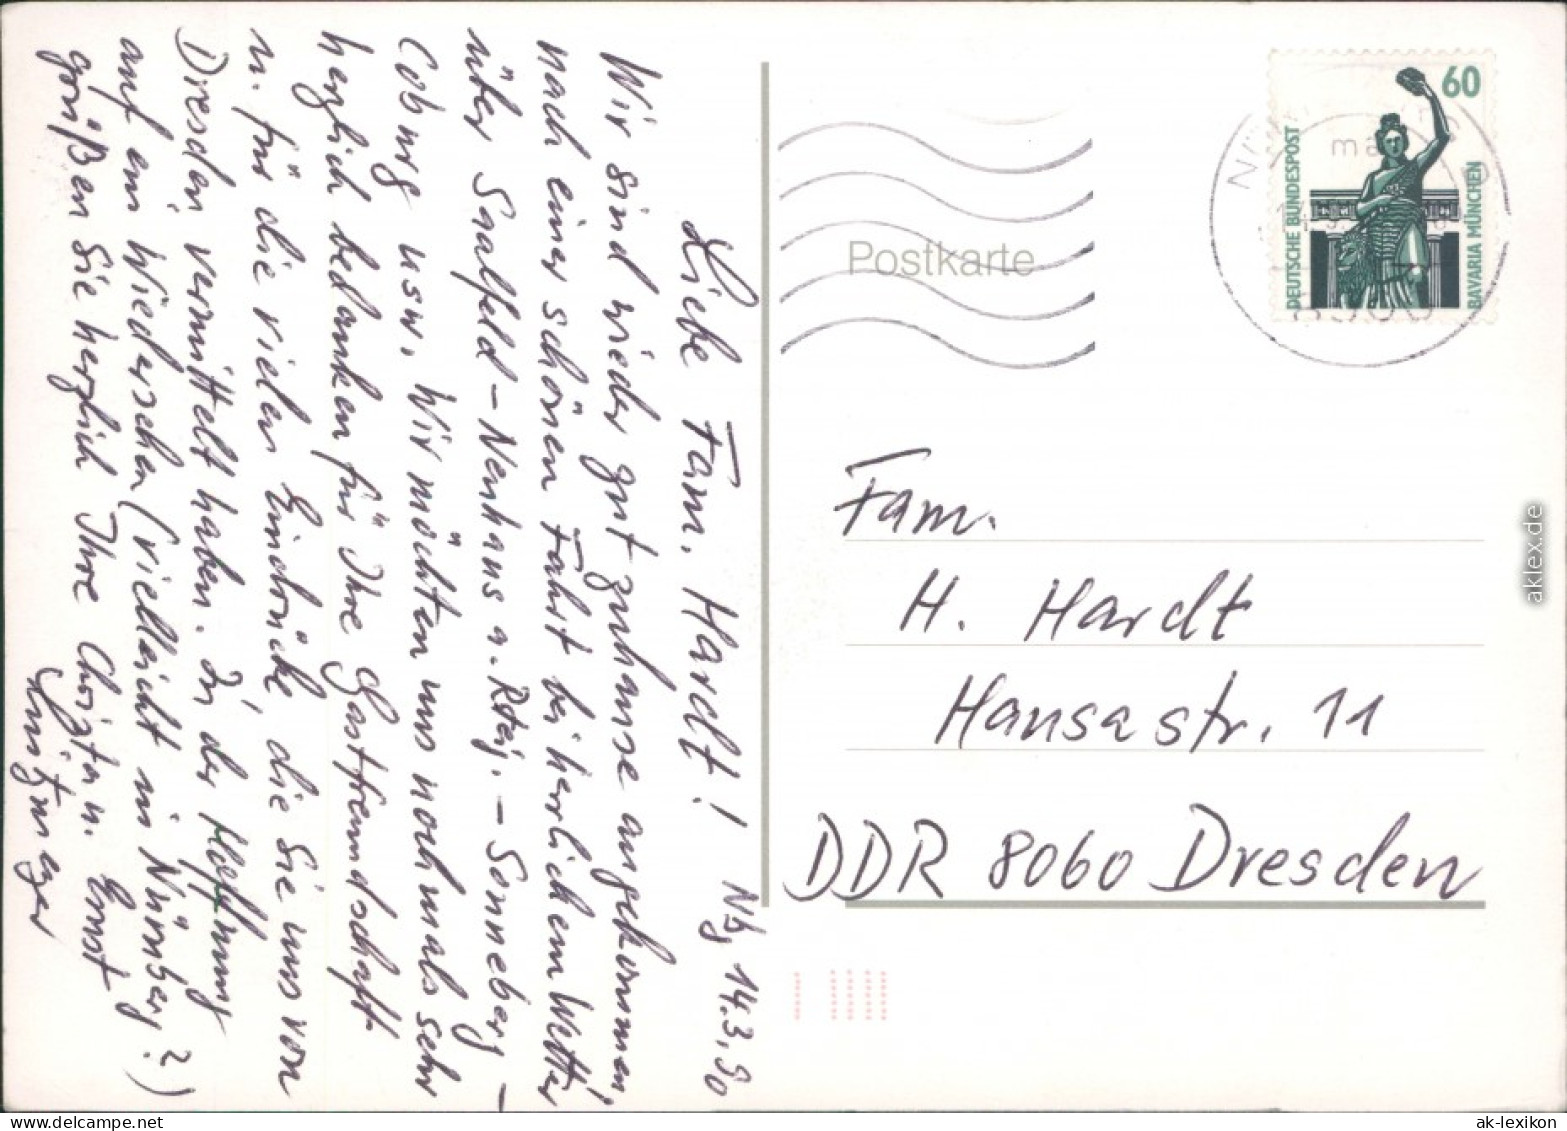 Nbg, 14.3.90
Liebe Fam. Hardt!
Wir sind wieder gut zuhause angekommen,
nach einer schönen Fahrt bei herrlichem Wetter
über Saalfeld – Neuhaus a. – Sonneberg –
Coburg usw. Wir möchten uns nochmals sehr
herzlich bedanken für Ihre Gastfreundschaft
u. für die vielen Eindrücke, die Sie uns von
Dresden vermittelt haben. In der Hoffnung
auf ein Wiedersehen (vielleicht in Nürnberg?)
grüßen Sie herzlich Ihre Christa u. Ernst
Postkarte
60
DEUTSCHE BUNDESPOST
BAVARIA MÜNCHEN
Fam.
H. Hardt
Hansastr. 11
DDR 8060 Dresden
aklex.de
ak-lexikon